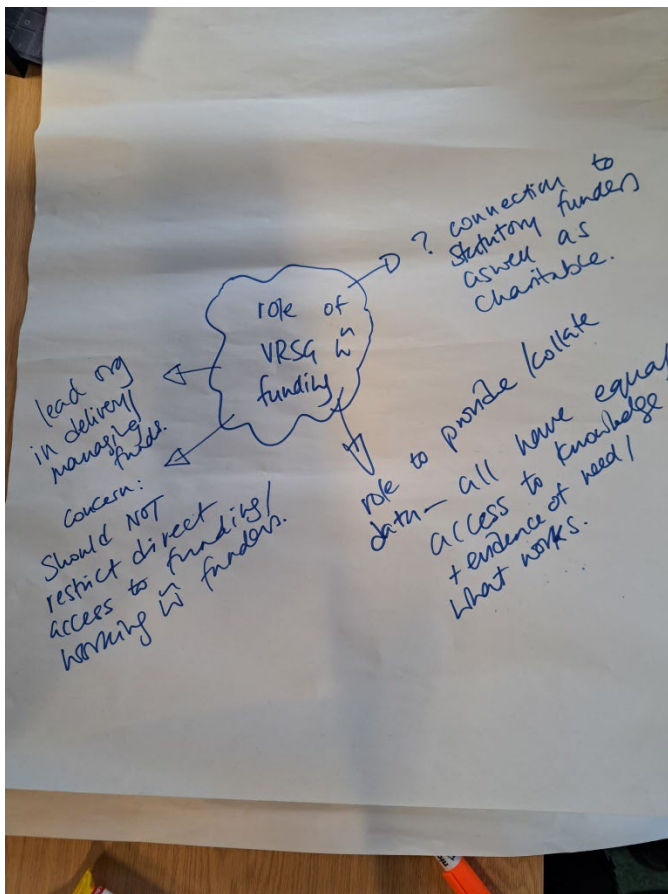 role of
VRSG w̃
funding
? connection to
statutory funders
aswell as
charitable.
lead org
in delivery/
managing
funds.
concern:
Should NOT
restrict direct
access to funding/
working w̃ funders.
role to provide/collate
data - all have equal
access to knowledge
+ evidence of need/
what works.